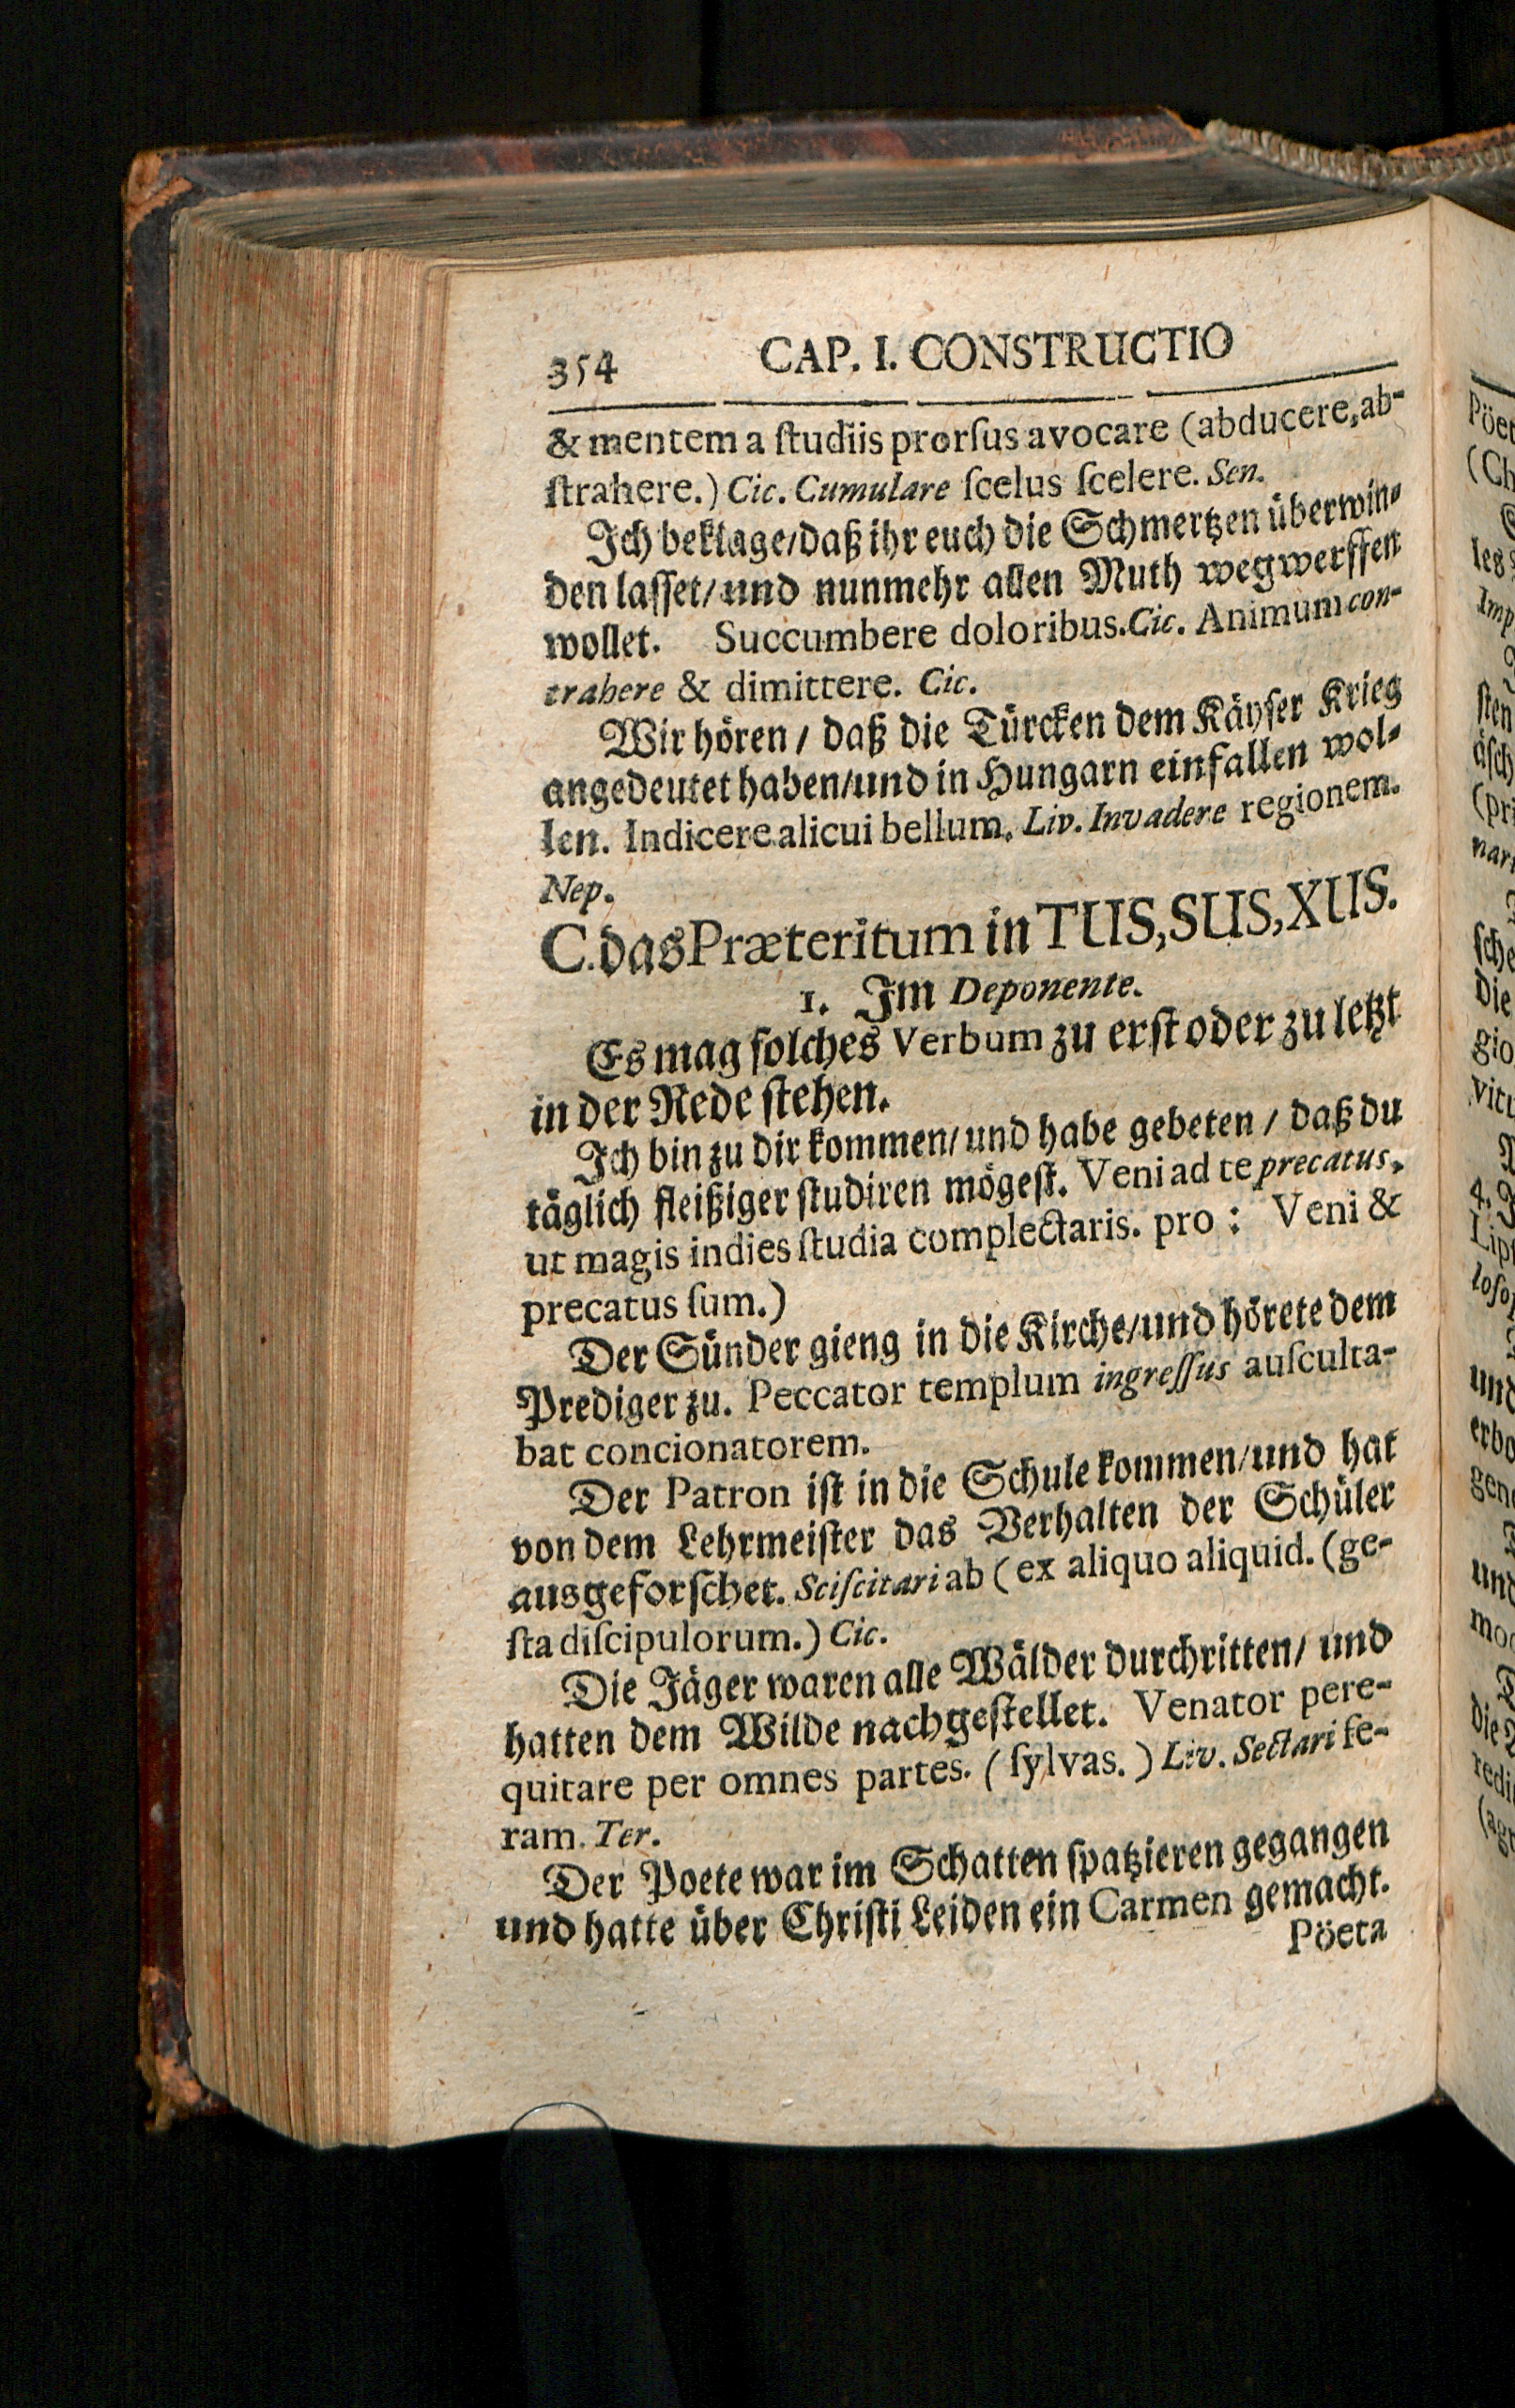 354 CAP. I. CONSTRUCTIO
& mentem a ſtudiis prorſus avocare (abducere, ab-
ſtrahere.) Cic. Cumulare ſcelus ſcelere. Sen.
Ich beklage/daß ihr euch die Schmertzen überwin-
den laſſet/und nunmehr allen Muth wegwerffen
wollet. Succumbere doloribus. Cic. Animum con-
trahere & dimittere. Cic.
Wir hören / daß die Türcken dem Käyſer Krieg
angedeutet haben/und in Hungarn einfallen wol-
len. Indicere alicui bellum. Liv. Invadere regionem.
Nep.
C. das Præteritum in TUS, SUS, XUS.
1. Im Deponente.
Es mag ſolches Verbum zu erſt oder zu letzt
in der Rede ſtehen.
Ich bin zu dir kommen/und habe gebeten / daß du
täglich fleißiger ſtudiren mögeſt. Veni ad te precatus,
ut magis indies ſtudia complectaris. pro : Veni &
precatus ſum.)
Der Sünder gieng in die Kirche/und hörete dem
Prediger zu. Peccator templum ingreſſus auſculta-
bat concionatorem.
Der Patron iſt in die Schule kommen/und hat
von dem Lehrmeiſter das Verhalten der Schüler
ausgeforſchet. Sciſcitari ab (ex aliquo aliquid. (ge-
ſta diſcipulorum.) Cic.
Die Jäger waren alle Wälder durchritten/ und
hatten dem Wilde nachgeſtellet. Venator pere-
quitare per omnes partes. (ſylvas.) Liv. Sectari fe-
ram. Ter.
Der Poete war im Schatten ſpatzieren gegangen
und hatte über Chriſti Leiden ein Carmen gemacht.
Pöeta